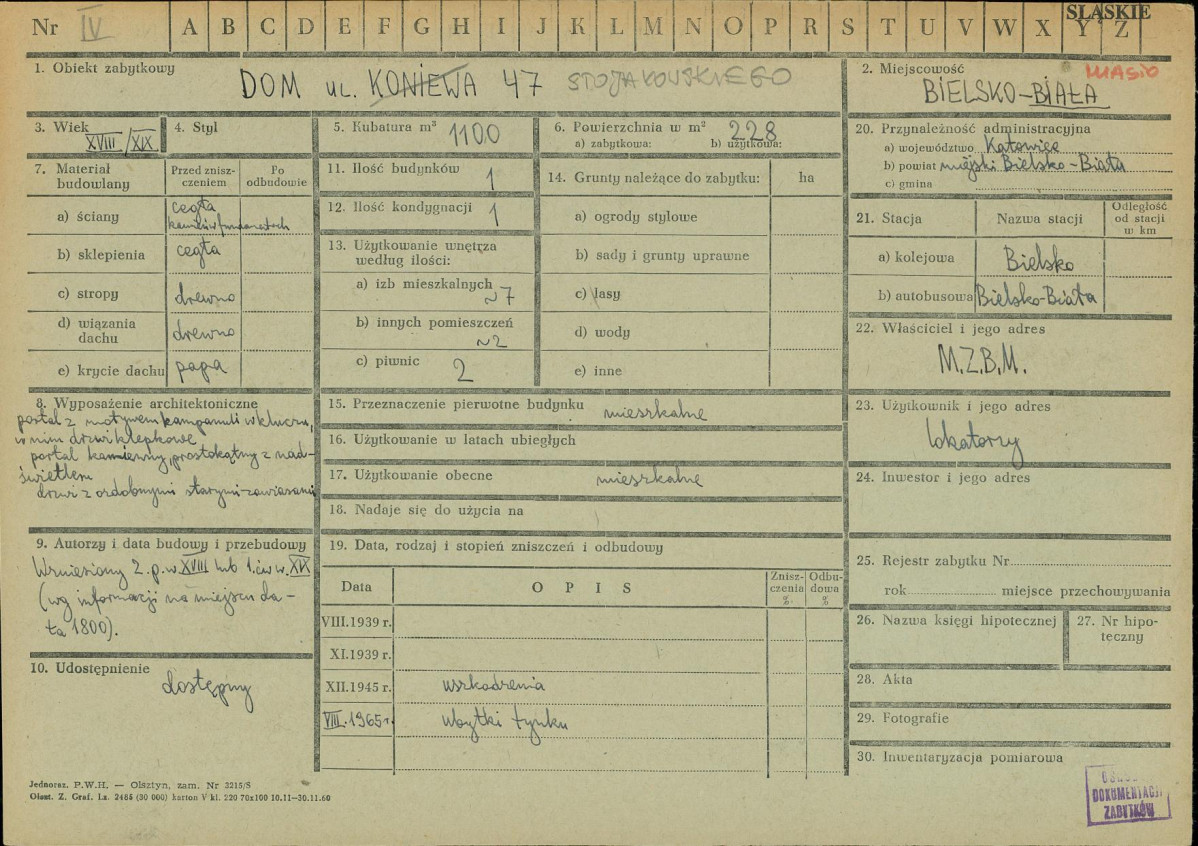 Nr IV A B C D E F G H I J K L M N O P R S T U V W X Y Z ŚLĄSKIE
1. Obiekt zabytkowy
DOM ul. KONIEWA 47 STOJAŁOWSKIEGO
2. Miejscowość MIASTO
BIELSKO-BIAŁA
3. Wiek
XVIII/XIX
4. Styl
5. Kubatura m³ 1100
6. Powierzchnia w m² 228
a) zabytkowa: b) użytkowa:
7. Materiał budowlany
Przed zniszczeniem
Po odbudowie
a) ściany cegła
kamień w fundamentach
b) sklepienia cegła
c) stropy drewno
d) wiązania dachu drewno
e) krycie dachu papa
8. Wyposażenie architektoniczne
portal z motywem kampanuli w kluczu,
w nim drzwi klepkowe
portal kamienny, prostokątny z nad-
świetlem
drzwi z ozdobnymi starymi zawiasami
9. Autorzy i data budowy i przebudowy
Wzniesiony 2.p.w XVIII lub 1.ćw w. XIX
(wg informacji na miejscu da-
ta 1800).
10. Udostępnienie
dostępny
11. Ilość budynków 1
12. Ilość kondygnacji 1
13. Użytkowanie wnętrza
według ilości:
a) izb mieszkalnych
~7
b) innych pomieszczeń
~2
c) piwnic 2
14. Grunty należące do zabytku: ha
a) ogrody stylowe
b) sady i grunty uprawne
c) lasy
d) wody
e) inne
15. Przeznaczenie pierwotne budynku mieszkalne
16. Użytkowanie w latach ubiegłych
17. Użytkowanie obecne mieszkalne
18. Nadaje się do użycia na
19. Data, rodzaj i stopień zniszczeń i odbudowy
Data
OPIS
Zniszczenia %
Odbudowa %
VIII.1939 r.
XI.1939 r.
XII.1945 r. uszkodzenia
VIII.1965 r. ubytki tynku
20. Przynależność administracyjna
a) województwo Katowice
b) powiat miejski Bielsko-Biała
c) gmina
21. Stacja
Nazwa stacji
Odległość od stacji w km
a) kolejowa Bielsko
b) autobusowa Bielsko-Biała
22. Właściciel i jego adres
M.Z.B.M.
23. Użytkownik i jego adres
lokatorzy
24. Inwestor i jego adres
25. Rejestr zabytku Nr
rok miejsce przechowywania
26. Nazwa księgi hipotecznej
27. Nr hipo-
teczny
28. Akta
29. Fotografie
30. Inwentaryzacja pomiarowa
Jednoraz. P.W.H. — Olsztyn, zam. Nr 3215/S
Olszt. Z. Graf. Lz. 2485 (30 000) karton V kl. 220 70x100 10.11—30.11.60
DOKUMENTACJI
ZABYTKÓW